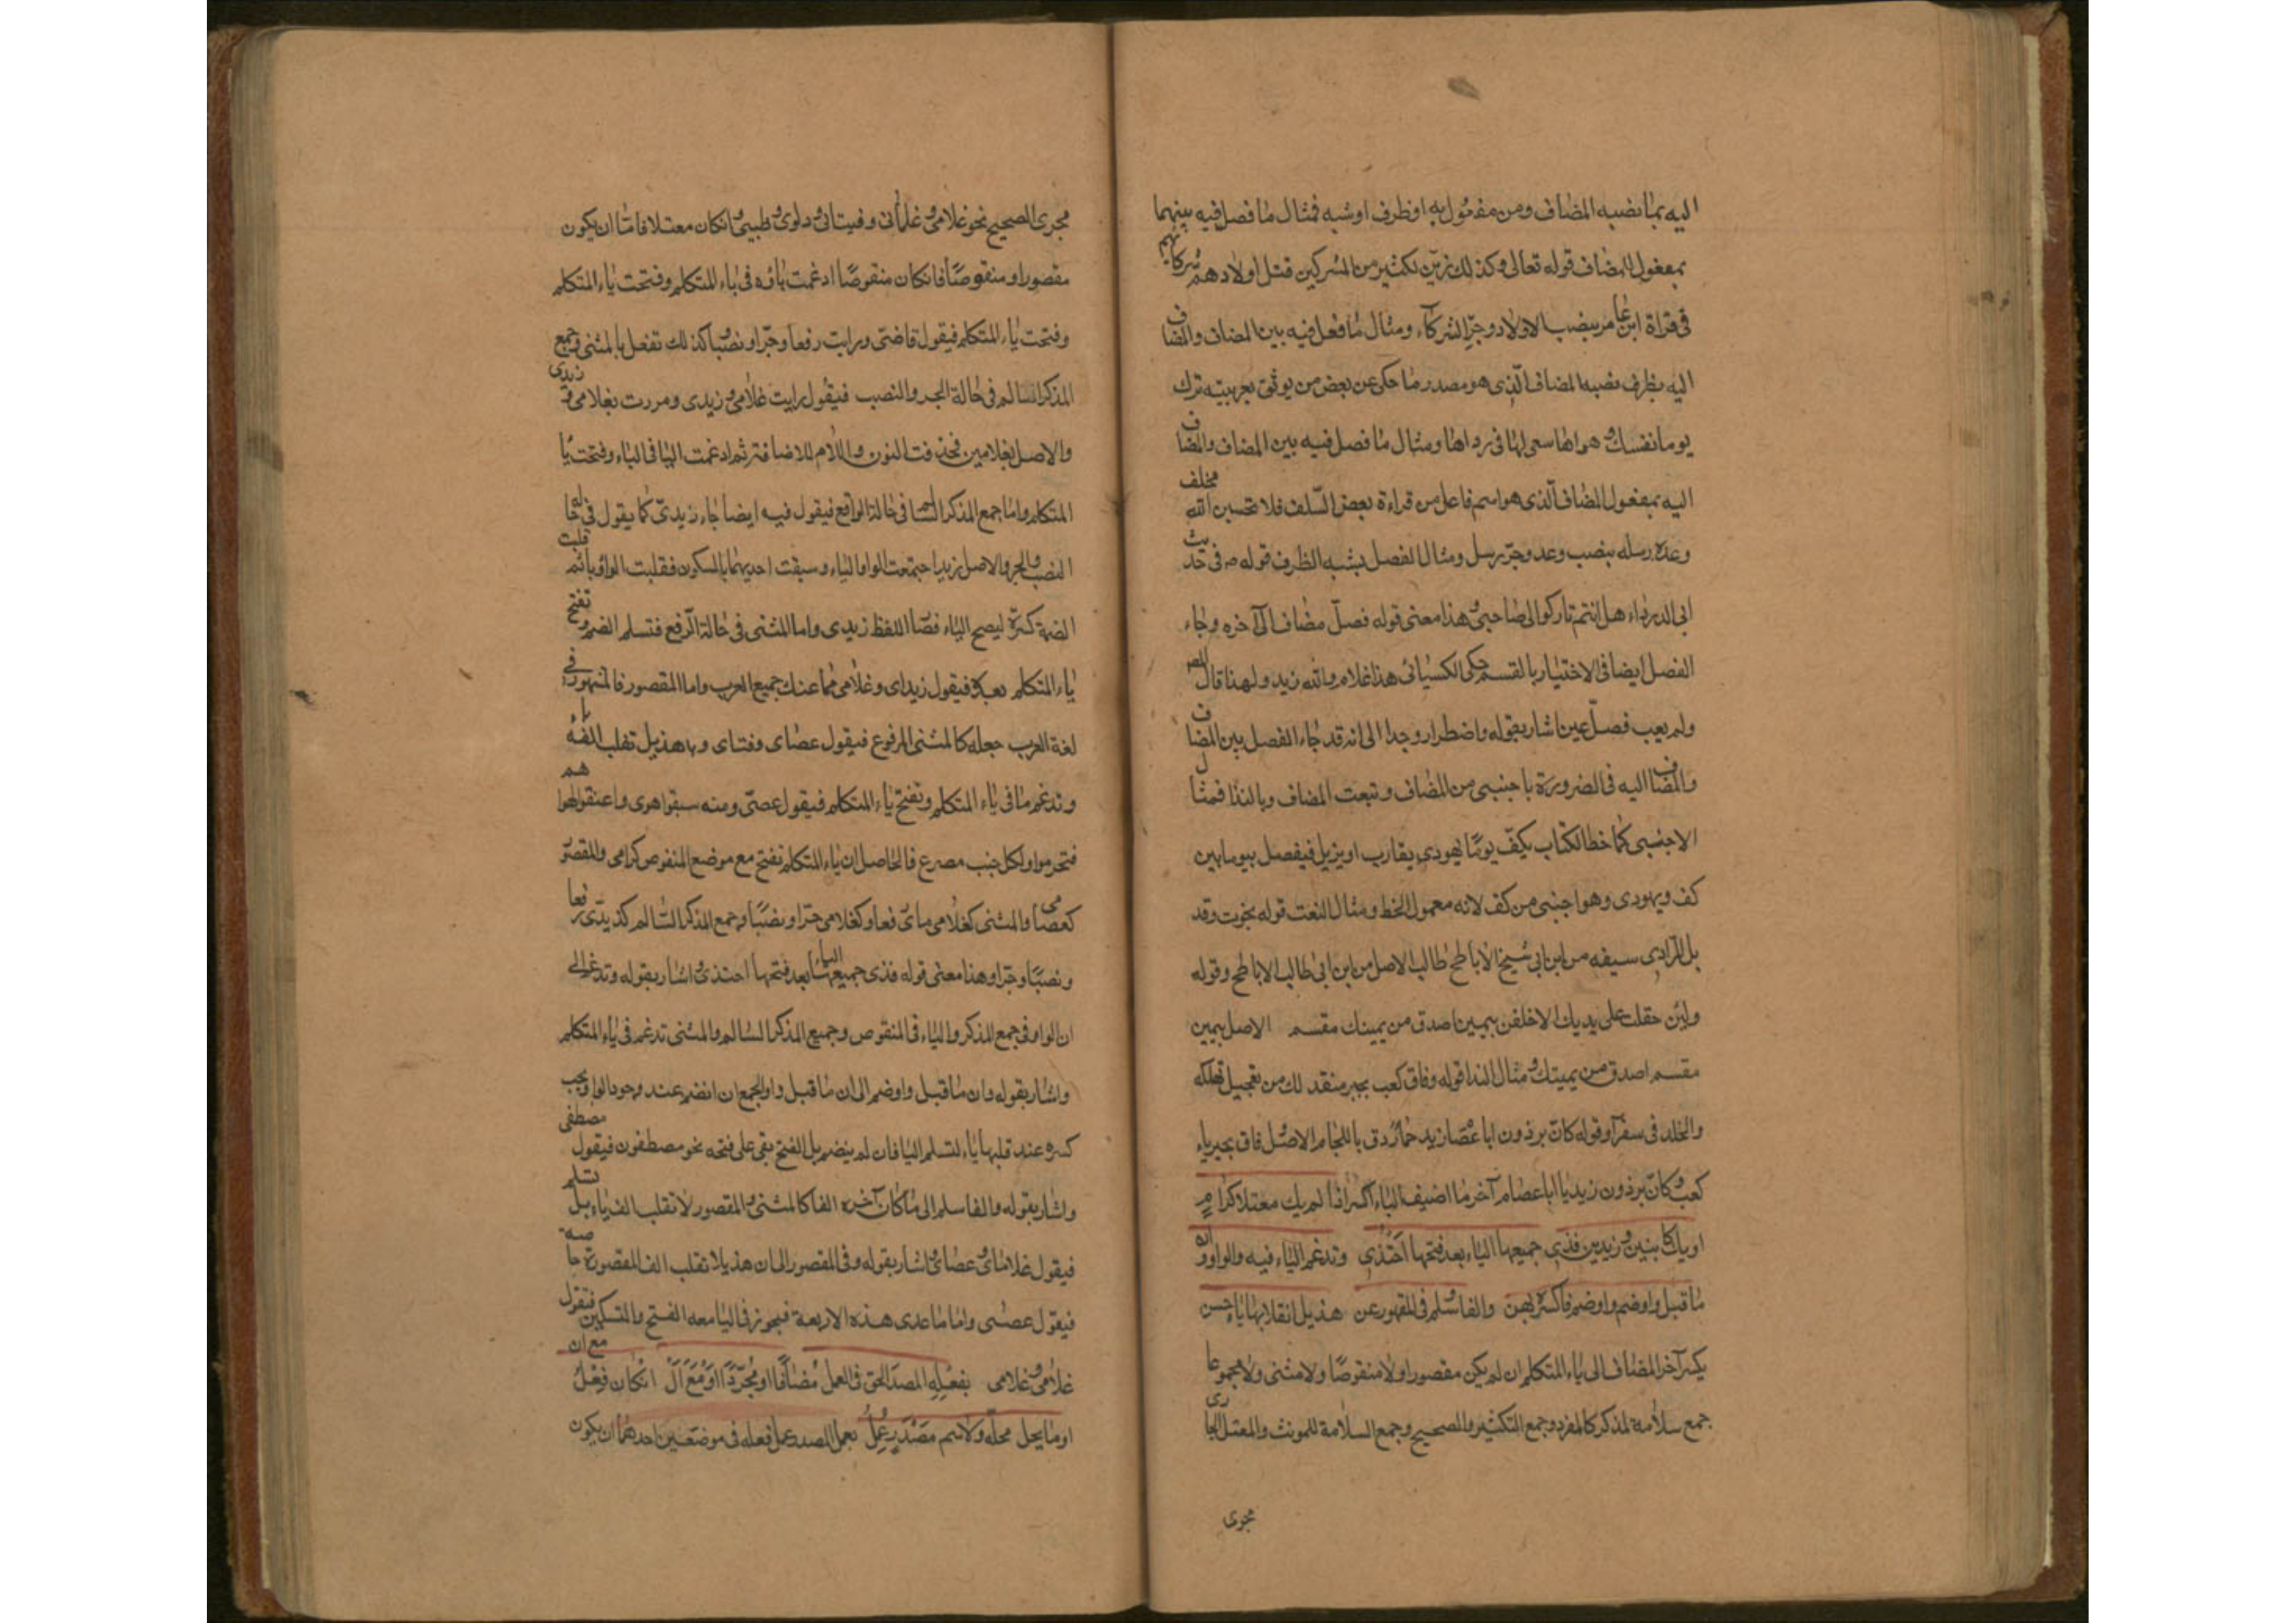 اليه بما نصبه المضاف ومن مفعول به او ظرف او شبه فمثال ما فصل فيه بينهما
بمفعول المضاف قوله تعالى وكذلك زين لكثير من المشركين قتل اولادهم شركائهم
فى قراة ابن عامر بنصب الاولاد وجر الشركآء ومثال ما فصل فيه بين المضاف والمضاف
اليه بظرف نصبه المضاف الذى هو مصدر ما حكى عن بعض من يوثق بعربيته ترك
يوما نفسك وهواها سعى لها فى رداها ومثال ما فصل فيه بين المضاف والمضاف
اليه بمفعول المضاف الذى هو اسم فاعل من قراءة بعض السلف فلا تحسبن الله مخلف
وعده رسله بنصب وعد وجر رسل ومثال الفصل بشبه الظرف قوله ص فى حديث
ابى الدرداء هل انتم تاركوا لى صاحبى هذا معنى قوله فصل مضاف الى آخره وجاء
الفصل ايضا فى الاختيار بالقسم حكى الكسائى هذا غلام والله زيد ولهذا قال المص
ولم يعب فصل يمين اشار بقوله واضطرار وجدا الى انه قد جاء الفصل بين المضاف
والمضاف اليه فى الضرورة باجنبى من المضاف وبنعت المضاف وبالندا فمثال
الاجنبى كما خط الكتاب بكف يوما يهودى يقارب او يزيل ففصل بيوما بين
كف ويهودى وهو اجنبى من كف لانه معمول الخط ومثال النعت قوله نجوت وقد
بل المرادى سيفه من ابن ابى شيخ الاباطح طالب الاصل من ابن ابى طالب الاباطح وقوله
ولئن حلفت على يديك لاحلفن بيمين اصدق من يمينك مقسم الاصل بيمين
مقسم اصدق من يمينك ومثال الندا قوله وفاق كعب بجير منقذ لك من تعجيل تهلكه
والخلد فى سقر او قوله كان برذون ابا عصام زيد حمار دق باللجام الاصل فاق بجير ياء
كعب وكان برذون زيد يا ابا عصام آخر ما اضيف للياء اكسر اذا لم يك معتلا كرام
او يك كابنين وزيدين فذى جميعها الياء بعد فتحها احتذى وتدغم الياء فيه والواو وان
ما قبل واو ضم فاكسره يهن والفا سلم فى المقصور عن هذيل انقلابها ياء حسن
يكسر آخر المضاف الى ياء المتكلم ان لم يكن مقصورا ولا منقوصا ولا مثنى ولا مجموعا
جمع سلامة لمذكر كالمفرد وجمع التكثير والصحيح وجمع السلامة للمونث والمعتل الجارى
مجرى
مجرى الصحيح نحو غلامى وغلمانى وفتياتى ودلوى وظبيى وان كان معتلا فاما ان يكون
مقصورا او منقوصا فان كان منقوصا ادغمت ياؤه فى ياء المتكلم وفتحت ياء المتكلم
وفتحت ياء المتكلم فيقول قاضى ورايت رفعا وجرا ونصبا كذلك تفعل بالمثنى وجمع
المذكر السالم فى حالة الجر والنصب فيقول رايت غلامى وزيدى ومررت بغلامى وزيدى
والاصل بغلامين فحذفت النون واللام للاضافة ثم ادغمت اليا فى الياء وفتحت يا
المتكلم واما جمع المذكر السا فى حالة الرافع فيقول فيه ايضا جاء زيدى كما يقول فى حالة
النصب والجر والاصل زيدى اجتمعت الواو والياء وسبقت احديهما بالسكون فقلبت الواو ياء ثم قلبت
الضمة كسرة ليصح الياء فصار اللفظ زيدى واما المثنى فى حالة الرفع فتسلم الفه وتفتح
ياء المتكلم بعده فيقول زيداى وغلامى عند جميع العرب واما المقصور فالمشهور فى
لغة العرب جعله كالمثنى المرفوع فيقول عصاى وفتاى وهذيل تقلب الفه ياء
وتدغمها فى ياء المتكلم وتفتح ياء المتكلم فيقول عصى ومنه سبقوا هوى واعنقوا لهواهم
فتخرموا ولكل جنب مصرع فالحاصل ان ياء المتكلم تفتح مع موضع المنقوص كرامى والمقصور
كعصاى والمثنى كغلاماى رفعا وكغلامى جرا ونصبا وجمع المذكر السالم كزيدى رفعا
ونصبا وجرا وهذا معنى قوله فذى جميعها اليا بعد فتحها احتذى واشار بقوله وتدغم الى
ان الواو فى جمع المذكر والياء فى المنقوص وجميع المذكر السالم والمثنى تدغم فى ياء المتكلم
واشار بقوله وان ما قبل واو ضم الى ان ما قبل واو الجمع ان انضم عند وجود الواو يجب
كسره عند قلبها ياء لتسلم اليا فان لم ينضم بل انفتح بقى على فتحه نحو مصطفون فيقول مصطفى
واشار بقوله والفا سلم الى ما كان آخره الفا كالمثنى والمقصور لا تقلب الفه ياء بل تسلم
فيقول غلاماى وعصاى واشار بقوله وفى المقصور الى ان هذيلا تقلب الف المقصورة خاصة
فيقول عصى واما ما عدى هذه الاربعة فيجوز فى اليا معه الفتح والتسكين فتقول
غلامى وغلامى بفعله المصدر الحق فى العمل مضافا او مجردا او مع ال ان كان فعل مع ان
او ما يحل محله ولاسم مصدر عمل يعمل المصدر عمل فعله فى موضعين احدهما ان يكون